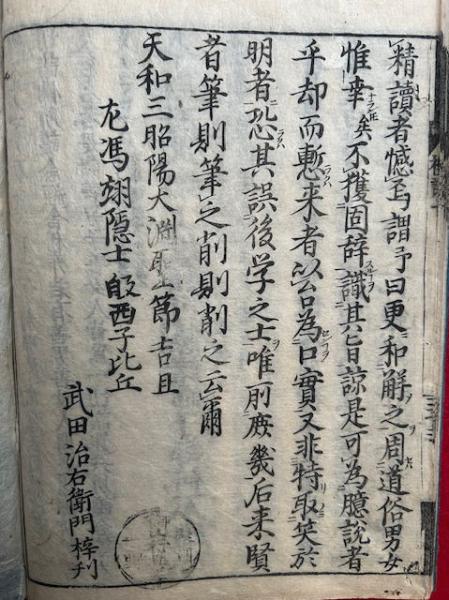 精讀者憾焉謂予曰更和解之周道俗男女
惟幸矣不獲固辞識其旨諒是可為臆説者
乎却而慙来者以台為口實又非特取笑於
明者恐其誤後学之士唯所庻幾后来賢
者筆則筆之削則削之云爾
天和三昭陽大淵聖節吉且
尨馮翊隠士 西子比丘
武田治右衛門梓刋